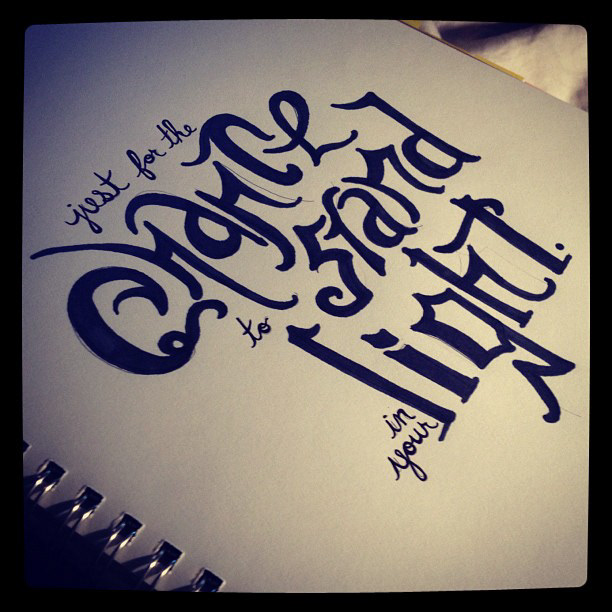 just for the
Chance
to stand
in your
light.